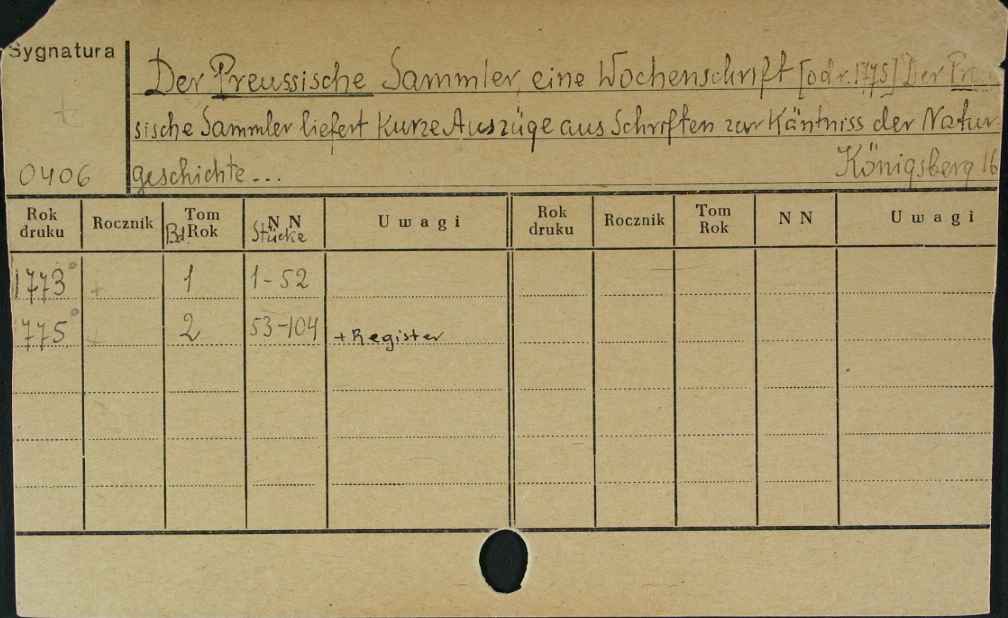 Sygnatura
Der Preussische Sammler, eine Wochenschrift [od r. 1775] Der Preus
sische Sammler liefert kurze Auszüge aus Schriften zur Käntniss der Natur
0406 geschichte... Königsberg 16
Rok druku Rocznik Tom Bd. Rok N N Stücke Uwagi Rok druku Rocznik Tom Rok N N Uwagi
1773 + 1 1-52
1775 + 2 53-104 + Register